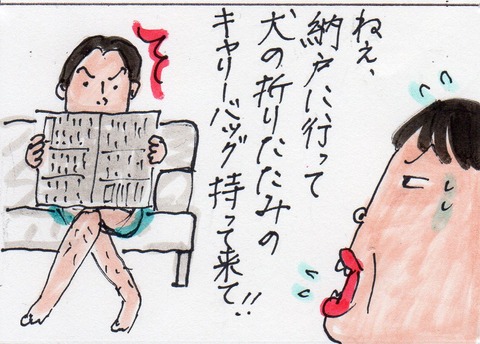 ねぇ、
納戸に行って
犬の折りたたみの
キャリーバッグ持って来て!!